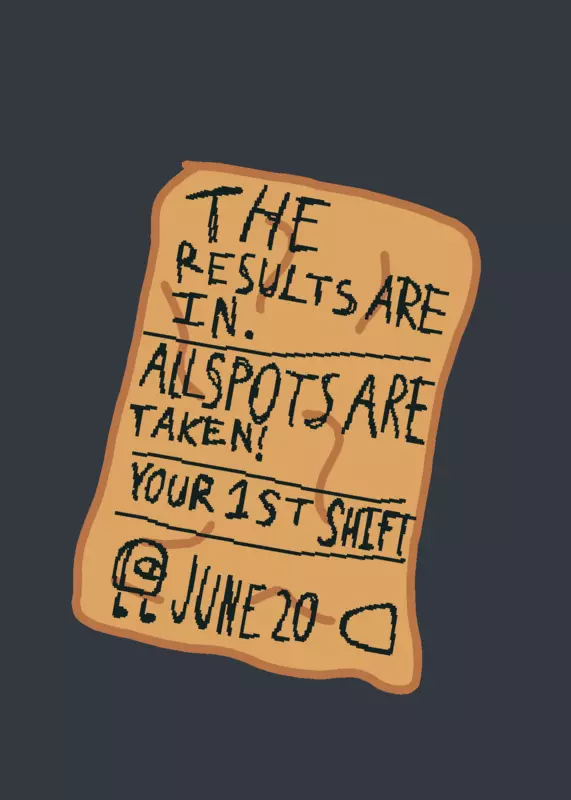 THE
RESULTS ARE
IN.
ALL SPOTS ARE
TAKEN!
YOUR 1ST SHIFT
JUNE 20